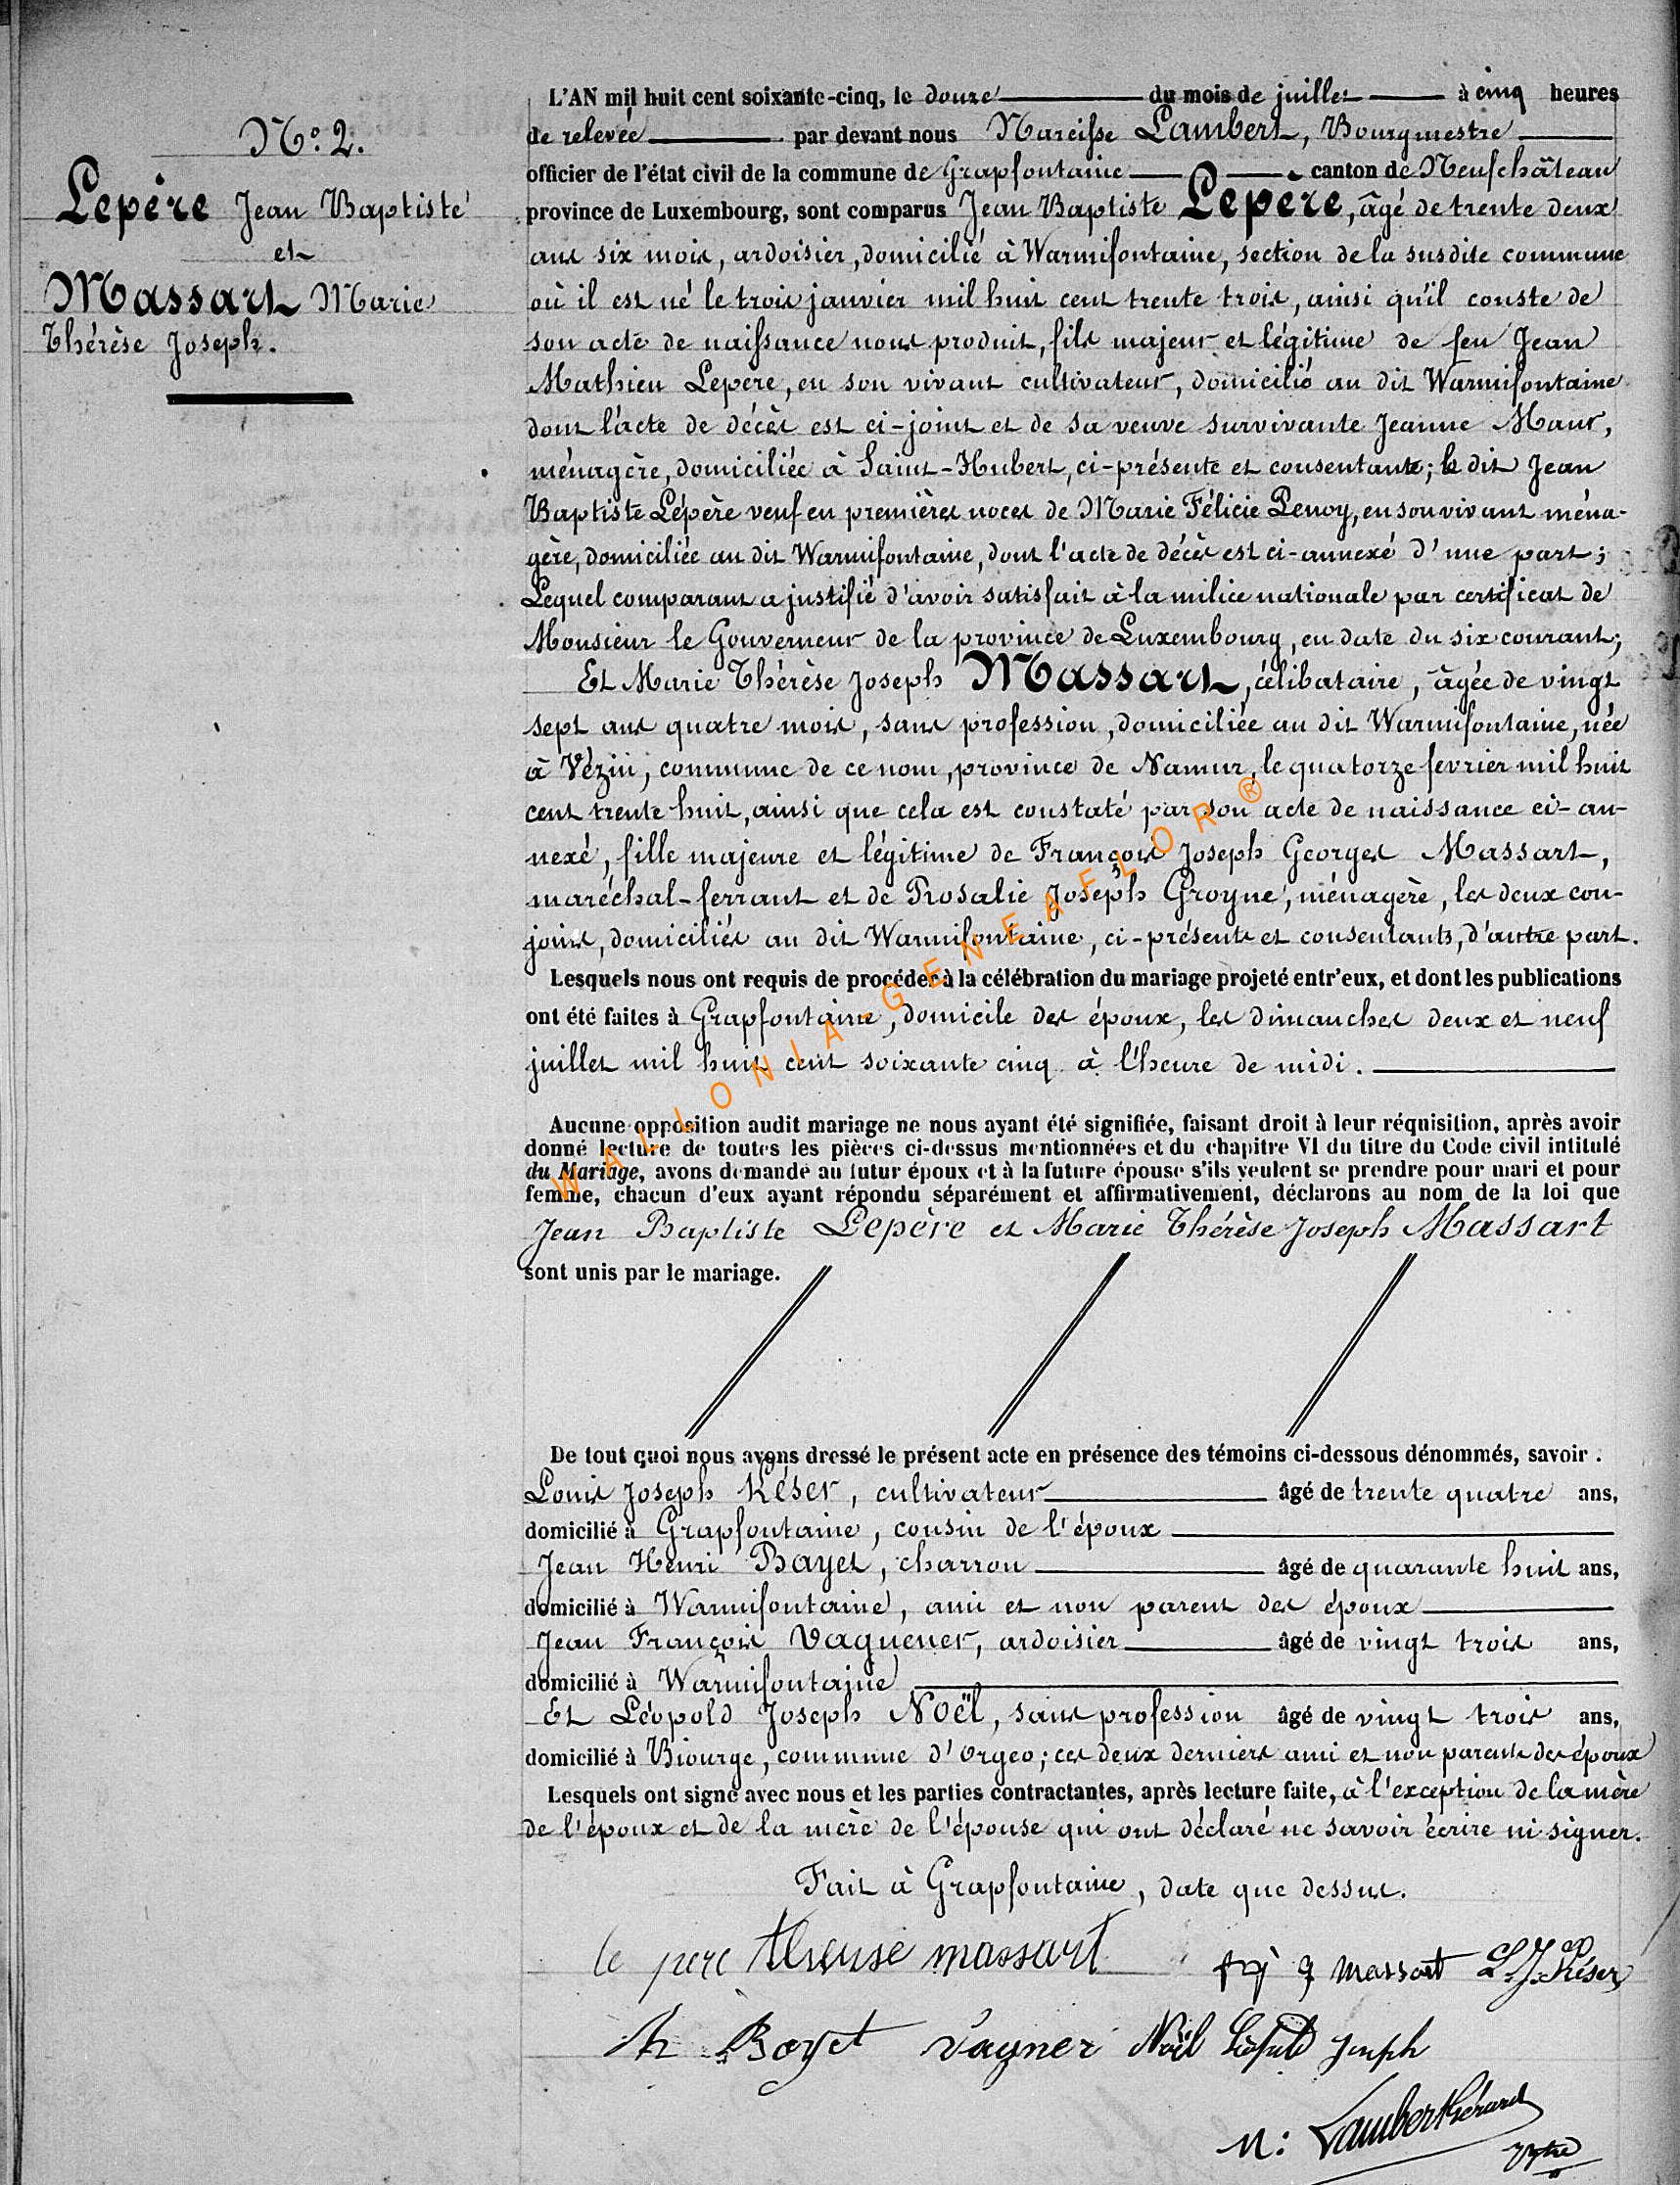 L'AN mil huit cent soixante-cinq, le douze du mois de juillet à cinq heures
de relevée par devant nous Narcisse Lambert, Bourgmestre
officier de l'état civil de la commune de Grapfontaine canton de Neufchâteau
province de Luxembourg, sont comparus Jean Baptiste Lepère, âgé de trente deux
ans six mois, ardoisier, domicilié à Warmifontaine, section de la susdite commune
où il est né le trois janvier mil huit cent trente trois, ainsi qu'il conste de
son acte de naissance nous produit, fils majeur et légitime de feu Jean
Mathieu Lepère, en son vivant cultivateur, domicilié au dit Warmifontaine
dont l'acte de décès est ci-joint et de sa veuve survivante Jeanne Maur,
ménagère, domiciliée à Saint-Hubert, ci-présente et consentante; le dit Jean
Baptiste Lépère veuf en premières noces de Marie Félicie Penoy, en son vivant ména-
gère, domiciliée au dit Warmifontaine, dont l'acte de décès est ci-annexé d'une part;
Lequel comparant a justifié d'avoir satisfait à la milice nationale par certificat de
Monsieur le Gouverneur de la province de Luxembourg, en date du six courant;
Et Marie Thérèse Joseph Massart, célibataire, âgée de vingt
sept ans quatre mois, sans profession, domiciliée au dit Warmifontaine, née
à Vézin, commune de ce nom, province de Namur, le quatorze fevrier mil huit
cent trente huit, ainsi que cela est constaté par son acte de naissance ci-an-
nexé, fille majeure et légitime de François Joseph Georges Massart,
maréchal-ferrant et de Rosalie Joseph Groyne, ménagère, les deux con-
joins, domiciliés au dit Warmifontaine, ci-présents et consentants, d'autre part.
Lesquels nous ont requis de procéder à la célébration du mariage projeté entr'eux, et dont les publications
ont été faites à Grapfontaine, domicile des époux, les dimanches deux et neuf
juillet mil huit cent soixante cinq à l'heure de midi.
Aucune opposition audit mariage ne nous ayant été signifiée, faisant droit à leur réquisition, après avoir
donné lecture de toutes les pièces ci-dessus mentionnées et du chapitre VI du titre du Code civil intitulé
du Mariage, avons demandé au futur époux et à la future épouse s'ils veulent se prendre pour mari et pour
femme, chacun d'eux ayant répondu séparément et affirmativement, déclarons au nom de la loi que
Jean Baptiste Lepère et Marie Thérèse Joseph Massart
sont unis par le mariage.
De tout quoi nous avons dressé le présent acte en présence des témoins ci-dessous dénommés, savoir.
Louis Joseph Késer, cultivateur âgé de trente quatre ans,
domicilié à Grapfontaine, cousin de l'époux
Jean Henri Bayet, charron âgé de quarante huit ans,
domicilié à Warmifontaine, ami et non parent des époux
Jean François Vaguener, ardoisier âgé de vingt trois ans,
domicilié à Warmifontaine
Et Léopold Joseph Noël, sans profession âgé de vingt trois ans,
domicilié à Biourge, commune d'Orgeo; ces deux derniers ami et non parents des époux
Lesquels ont signé avec nous et les parties contractantes, après lecture faite, à l'exception de la mère
de l'époux et de la mère de l'épouse qui ont déclaré ne savoir écrire ni signer.
Fait à Grapfontaine, date que dessus.
le pere massart massart L. J. Késer
Bayet Vagner Noël Léopold Joseph
N: Lambert Gérard
No. 2.
Lepère Jean Baptiste
et
Massart Marie
Thérèse Joseph.
WALLONIA-GENEAFLOR®